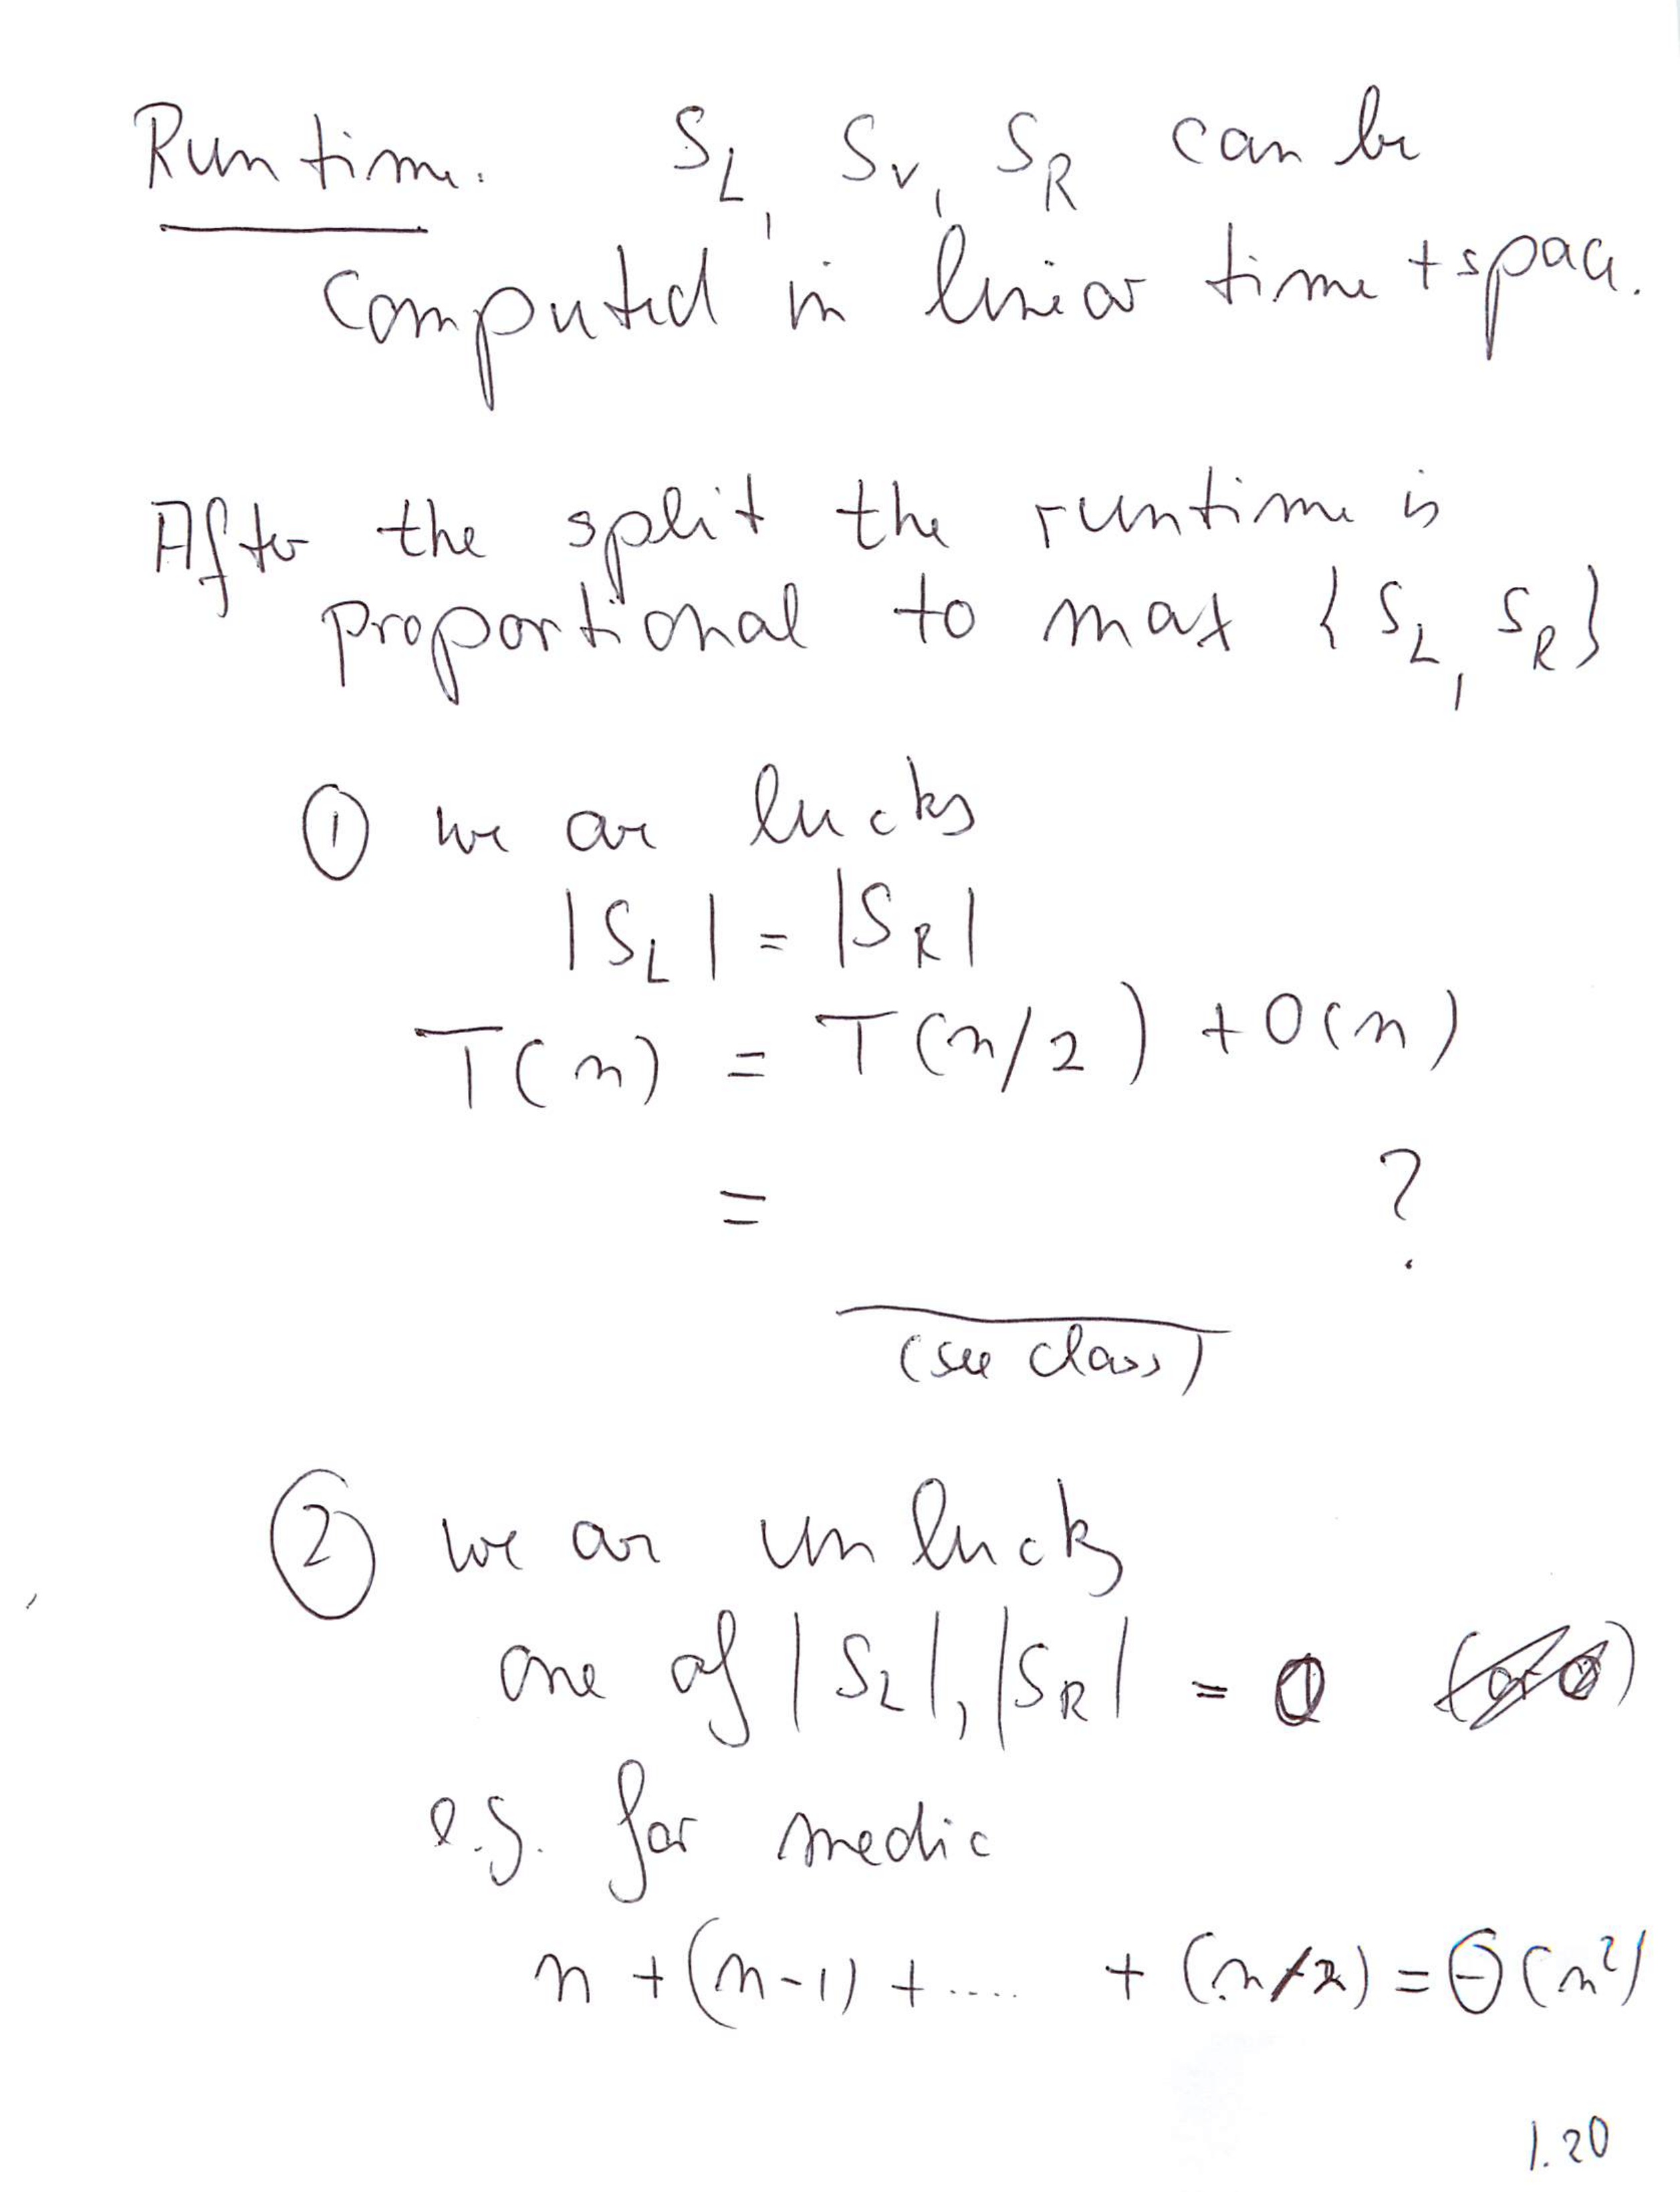 Runtime. S_L, S_v, S_R can be
computed in linear time + space.
After the split the runtime is
proportional to max {S_L, S_R}
① we are lucky
|S_L| = |S_R|
T(n) = T(n/2) + O(n)
= ?
(see class)
② we are unlucky
one of |S_L|, |S_R| =
e.g. for median
n + (n-1) + ..... + (n/2) = Θ(n²)
1.20